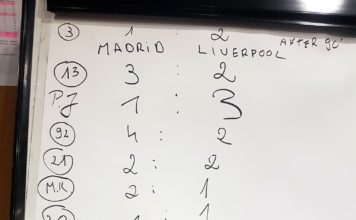 3 1 : 2
MADRID LIVERPOOL AFTER 90'
13 3 : 2
P.J 1 : 3
92 4 : 2
21 2 : 2
M.K 2 : 1
1 : 1